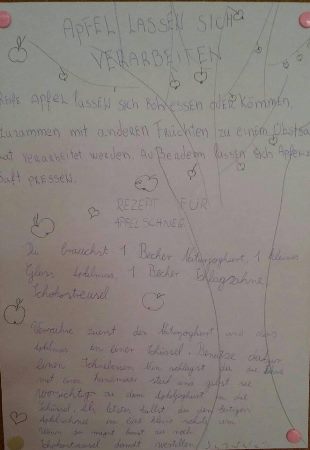 APFEL LASSEN SICH
VERARBEITEN
REIFE APFEL lassEN sich Roh essen oder Können
zusammen mit anderen Früchten zu einem Obstsa
lat verarbeitet werden. Außerdem lassen sich Apfel z
Saft pressEN.
REZEPT FÜR
APFELSCHNEE
Du brauchst 1 Becher Naturjoghurt, 1 kleines
Glas Apfelmus, 1 Becher Schlagsahne,
Schokostreusel
Verrühre zuerst den Naturjoghurt und das
Apfelmus in einer Schüssel. Benutze dafür
einen Schneebesen. Nun schlägst du die
mit einem
vorsichtig zu dem Apfeljoghurt in die
Schüssel.
Apfelschnee in
Wenn du magst kannst du noch
Schokostreusel darauf verteilen